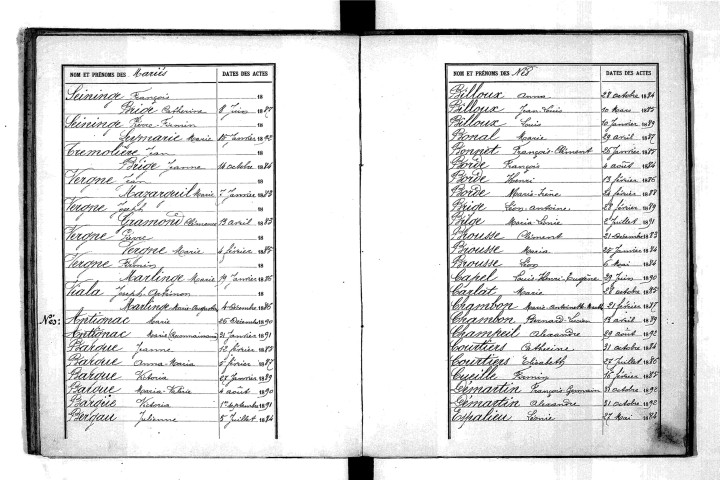 NOM ET PRÉNOMS DES Mariés DATES DES ACTES
Seininge François 18
Brige Catherine 8 Juin 1887
Seininge Pierre Firmin 18
Marie 10 Janvier 1892
Tremolière Jean 18
Brige Jeanne 16 octobre 1884
Vergne Jean 18
Mazarguil Marie 7 Janvier 1883
Vergne Joseph 18
Gramond Clémence 13 avril 1885
Vergne Pierre 18
Vergne Marie 4 février 1885
Vergne Firmin 18
Marlinge Marie 19 Janvier 1886
Viala Joseph Antonin 18
Marlinge Marie-Augustine 4 décembre 1886
Nés:
Antignac Marie 26 Décembre 1890
Antignac Marie 21 Janvier 1891
Barque Jeanne 12 février 1885
Barque Anna-Maria 5 février 1887
Barque Victoria 27 Janvier 1889
Barque Maria 4 août 1890
Barque Victoria 1er septembre 1891
Bergau Julienne 5 Juillet 1884
NOM ET PRÉNOMS DES Nés DATES DES ACTES
Billoux Anna 28 octobre 1884
Billoux Jean-Louis 10 Mars 1885
Billoux Louis 10 Janvier 1889
Bonal Marie 29 avril 1887
Bonnet François-Clément 25 Janvier 1885
Borde François 4 août 1884
Borde Henri 13 février 1886
Borde Marie-Irène 24 février 1888
Brige Léon-Antoine 28 février 1889
Brige Maria-Lénie 2 Juillet 1891
Brousse Clément 21 décembre 1883
Brousse Maria 24 Janvier 1884
Brousse Léon 6 Mai 1884
Capel Louis-Henri-Eugène 29 Juin 1890
Carlat Marie 28 octobre 1885
Chambon Marie Antoinette 21 février 1887
Chambon Bernard-Lucien 13 avril 1889
Champeil Alexandre 29 août 1892
Courtiers Catherine 31 octobre 1884
Courtiers Elisabeth 27 Juillet 1886
Cueille Firmin 16 février 1885
Démartin François-Germain 31 octobre 1892
Démartin Alexandre 31 octobre 1892
Espalieu Léonie 27 Mai 1884